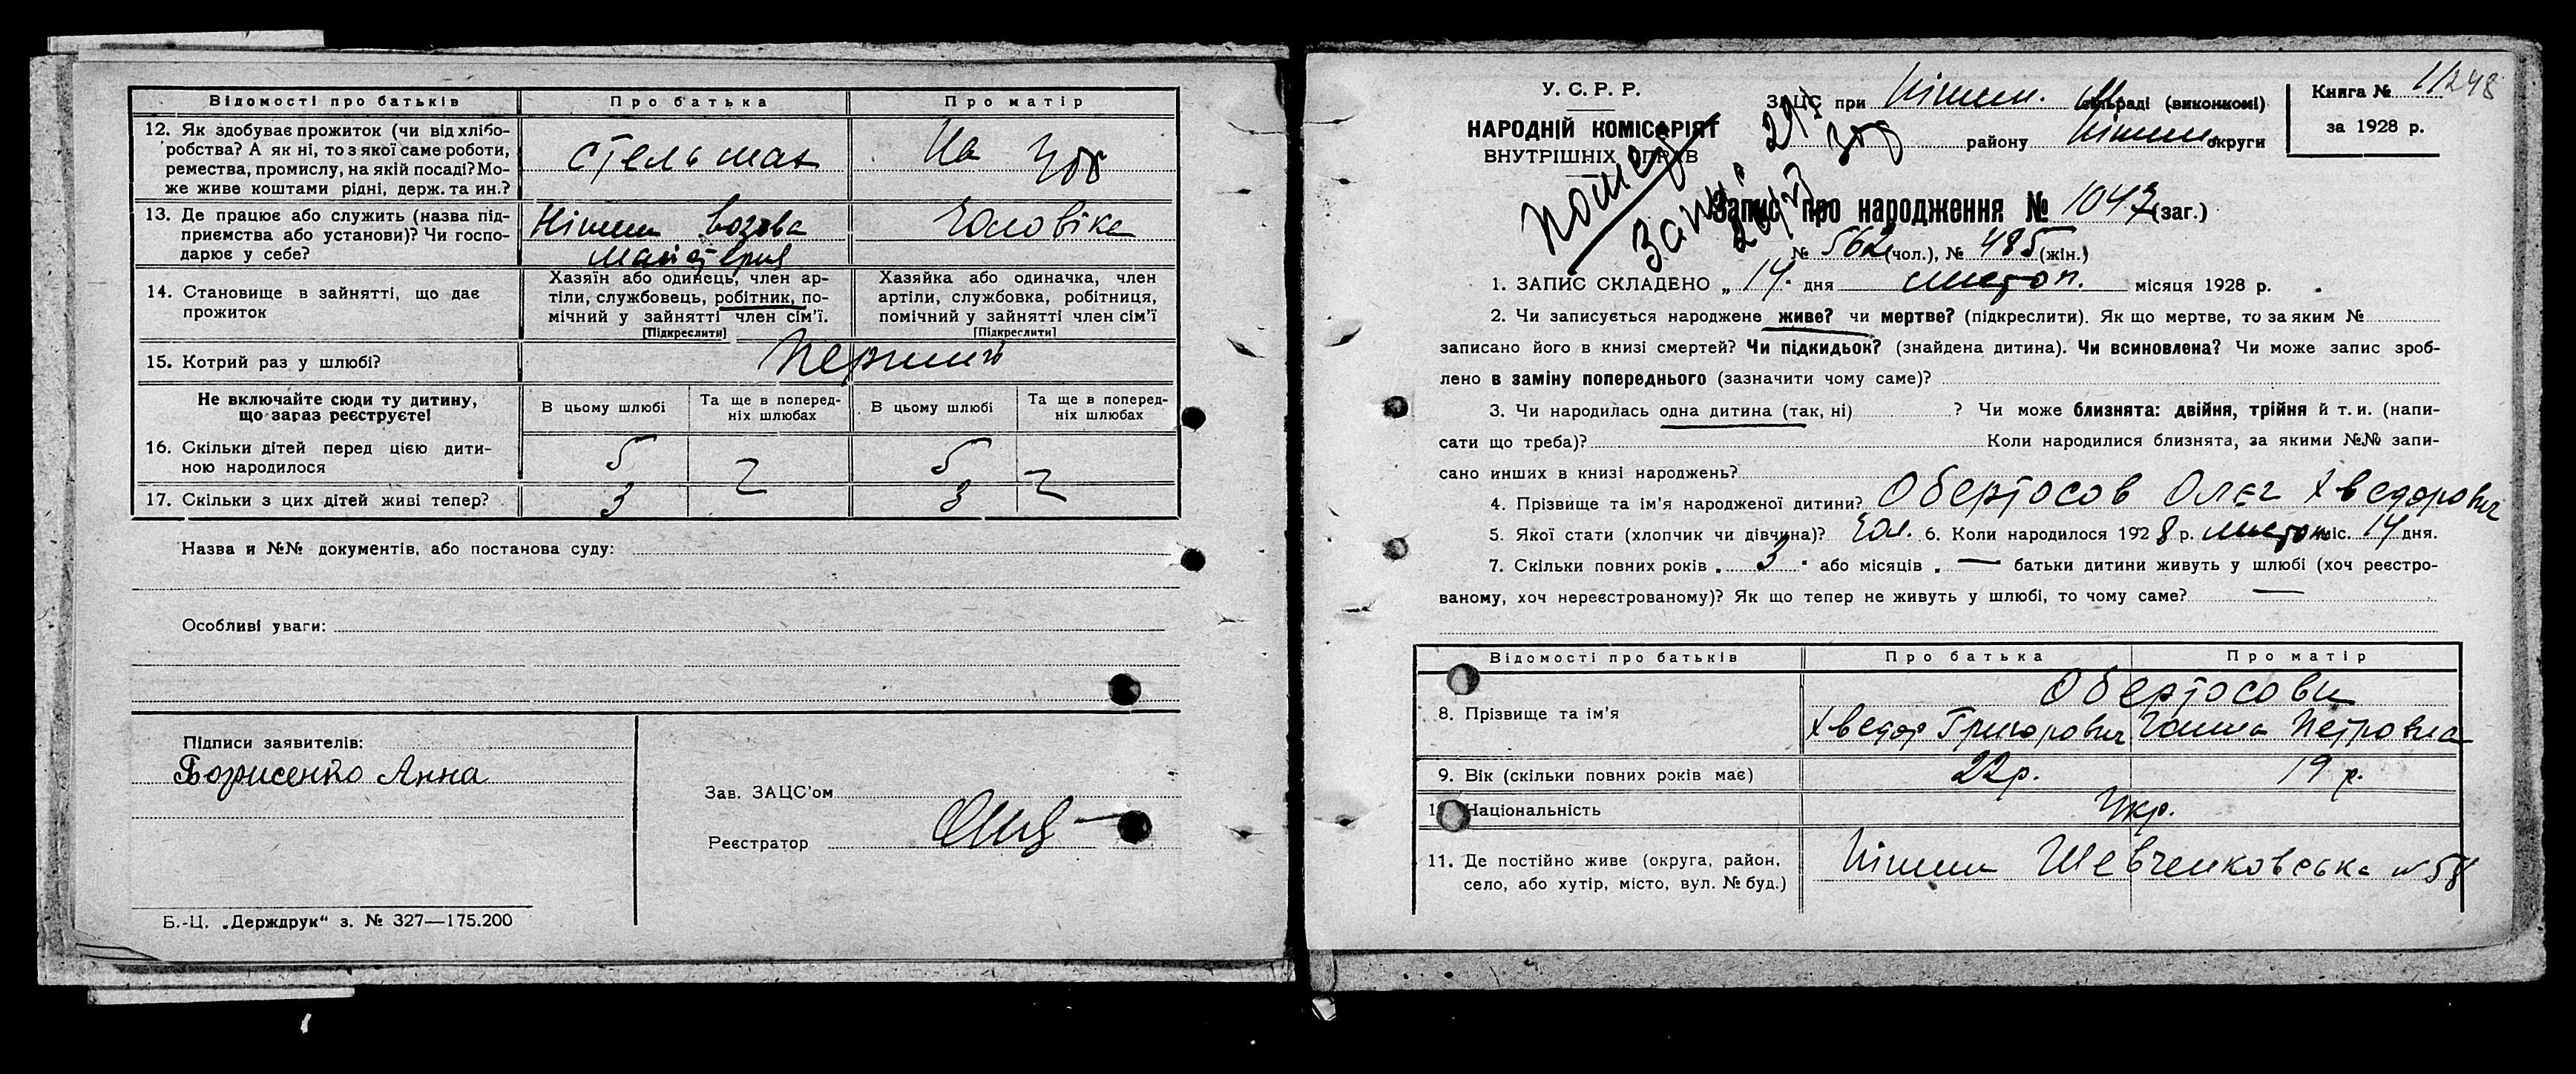 Відомості про батьків Про батька Про матір
12. Як здобуває прожиток (чи від хлібо-
робства? А як ні, то з якої саме роботи,
ремества, промислу, на якій посаді? Мо-
же живе коштами рідні, держ. та ин.?
Стельмах На
13. Де працює або служить (назва під-
приємства або установи)? Чи госпо-
дарює у себе?
Ніжин возова Чоловіка
14. Становище в зайнятті, що дає
прожиток
Хазяїн або одинець, член ар-
тіли, службовець, робітник, по-
мічний у зайнятті член сім'ї.
[Підкреслити]
Хазяйка або одиначка, член
артіли, службовка, робітниця,
помічний у зайнятті член сім'ї
[Підкреслити]
15. Котрий раз у шлюбі? Перший
Не включайте сюди ту дитину,
що загаз реєструєте!
В цьому шлюбі Та ще в поперед-
ніх шлюбах В цьому шлюбі Та ще в поперед-
ніх шлюбах
16. Скільки дітей перед цією дити-
ною народилося
5 5
17. Скільки з цих дітей живі тепер? 3 3
Назва и №№ документів, або постанова суду:
Особливі уваги:
Підписи заявителів:
Борисенко Анна
Зав. ЗАЦС'ом
Реєстратор
Б.-Ц. „Держдрук“ з. № 327—175.200
У. С. Р. Р.
НАРОДНІЙ КОМІСАРІЯТ
ВНУТРІШНІХ СПРАВ
ЗАЦС при Ніжин. сільраді (виконкомі)
району Ніжин округи
Книга № 11 248
за 1928 р.
Запис про народження № 1047 (заг.)
№ 562 (чол.), № 485 (жін.)
1. ЗАПИС СКЛАДЕНО „ 14 " дня листоп. місяця 1928 р.
2. Чи записується народжене живе? чи мертве? (підкреслити). Як що мертве, то за яким №
записано його в книзі смертей? Чи підкидьок? (знайдена дитина). Чи всиновлена? Чи може запис зроб-
лено в заміну попереднього (зазначити чому саме)?
3. Чи народилась одна дитина (так, ні) ? Чи може близнята: двійня, трійня й т. и. (напи-
сати що треба)? Коли народилися близнята, за якими №№ запи-
сано инших в книзі народжень?
4. Прізвище та ім'я народженої дитини? Обертосов Олєг Хведорович
5. Якої стати (хлопчик чи дівчина)? Чол. 6. Коли народилося 1928 р. листоп міс. 14 дня.
7. Скільки повних років „ 3 " або місяців „ — батьки дитини живуть у шлюбі (хоч реєстро-
ваному, хоч нереєстрованому)? Як що тепер не живуть у шлюбі, то чому саме? —
Відомості про батьків Про батька Про матір
Обертосови
8. Прізвище та ім'я Хведор Григорович Ганна Петровна
9. Вік (скільки повних років має) 22р. 19 р.
Національність Укр.
11. Де постійно живе (округа, район,
село, або хутір, місто, вул. № буд.)
Ніжин Шевченковська №58